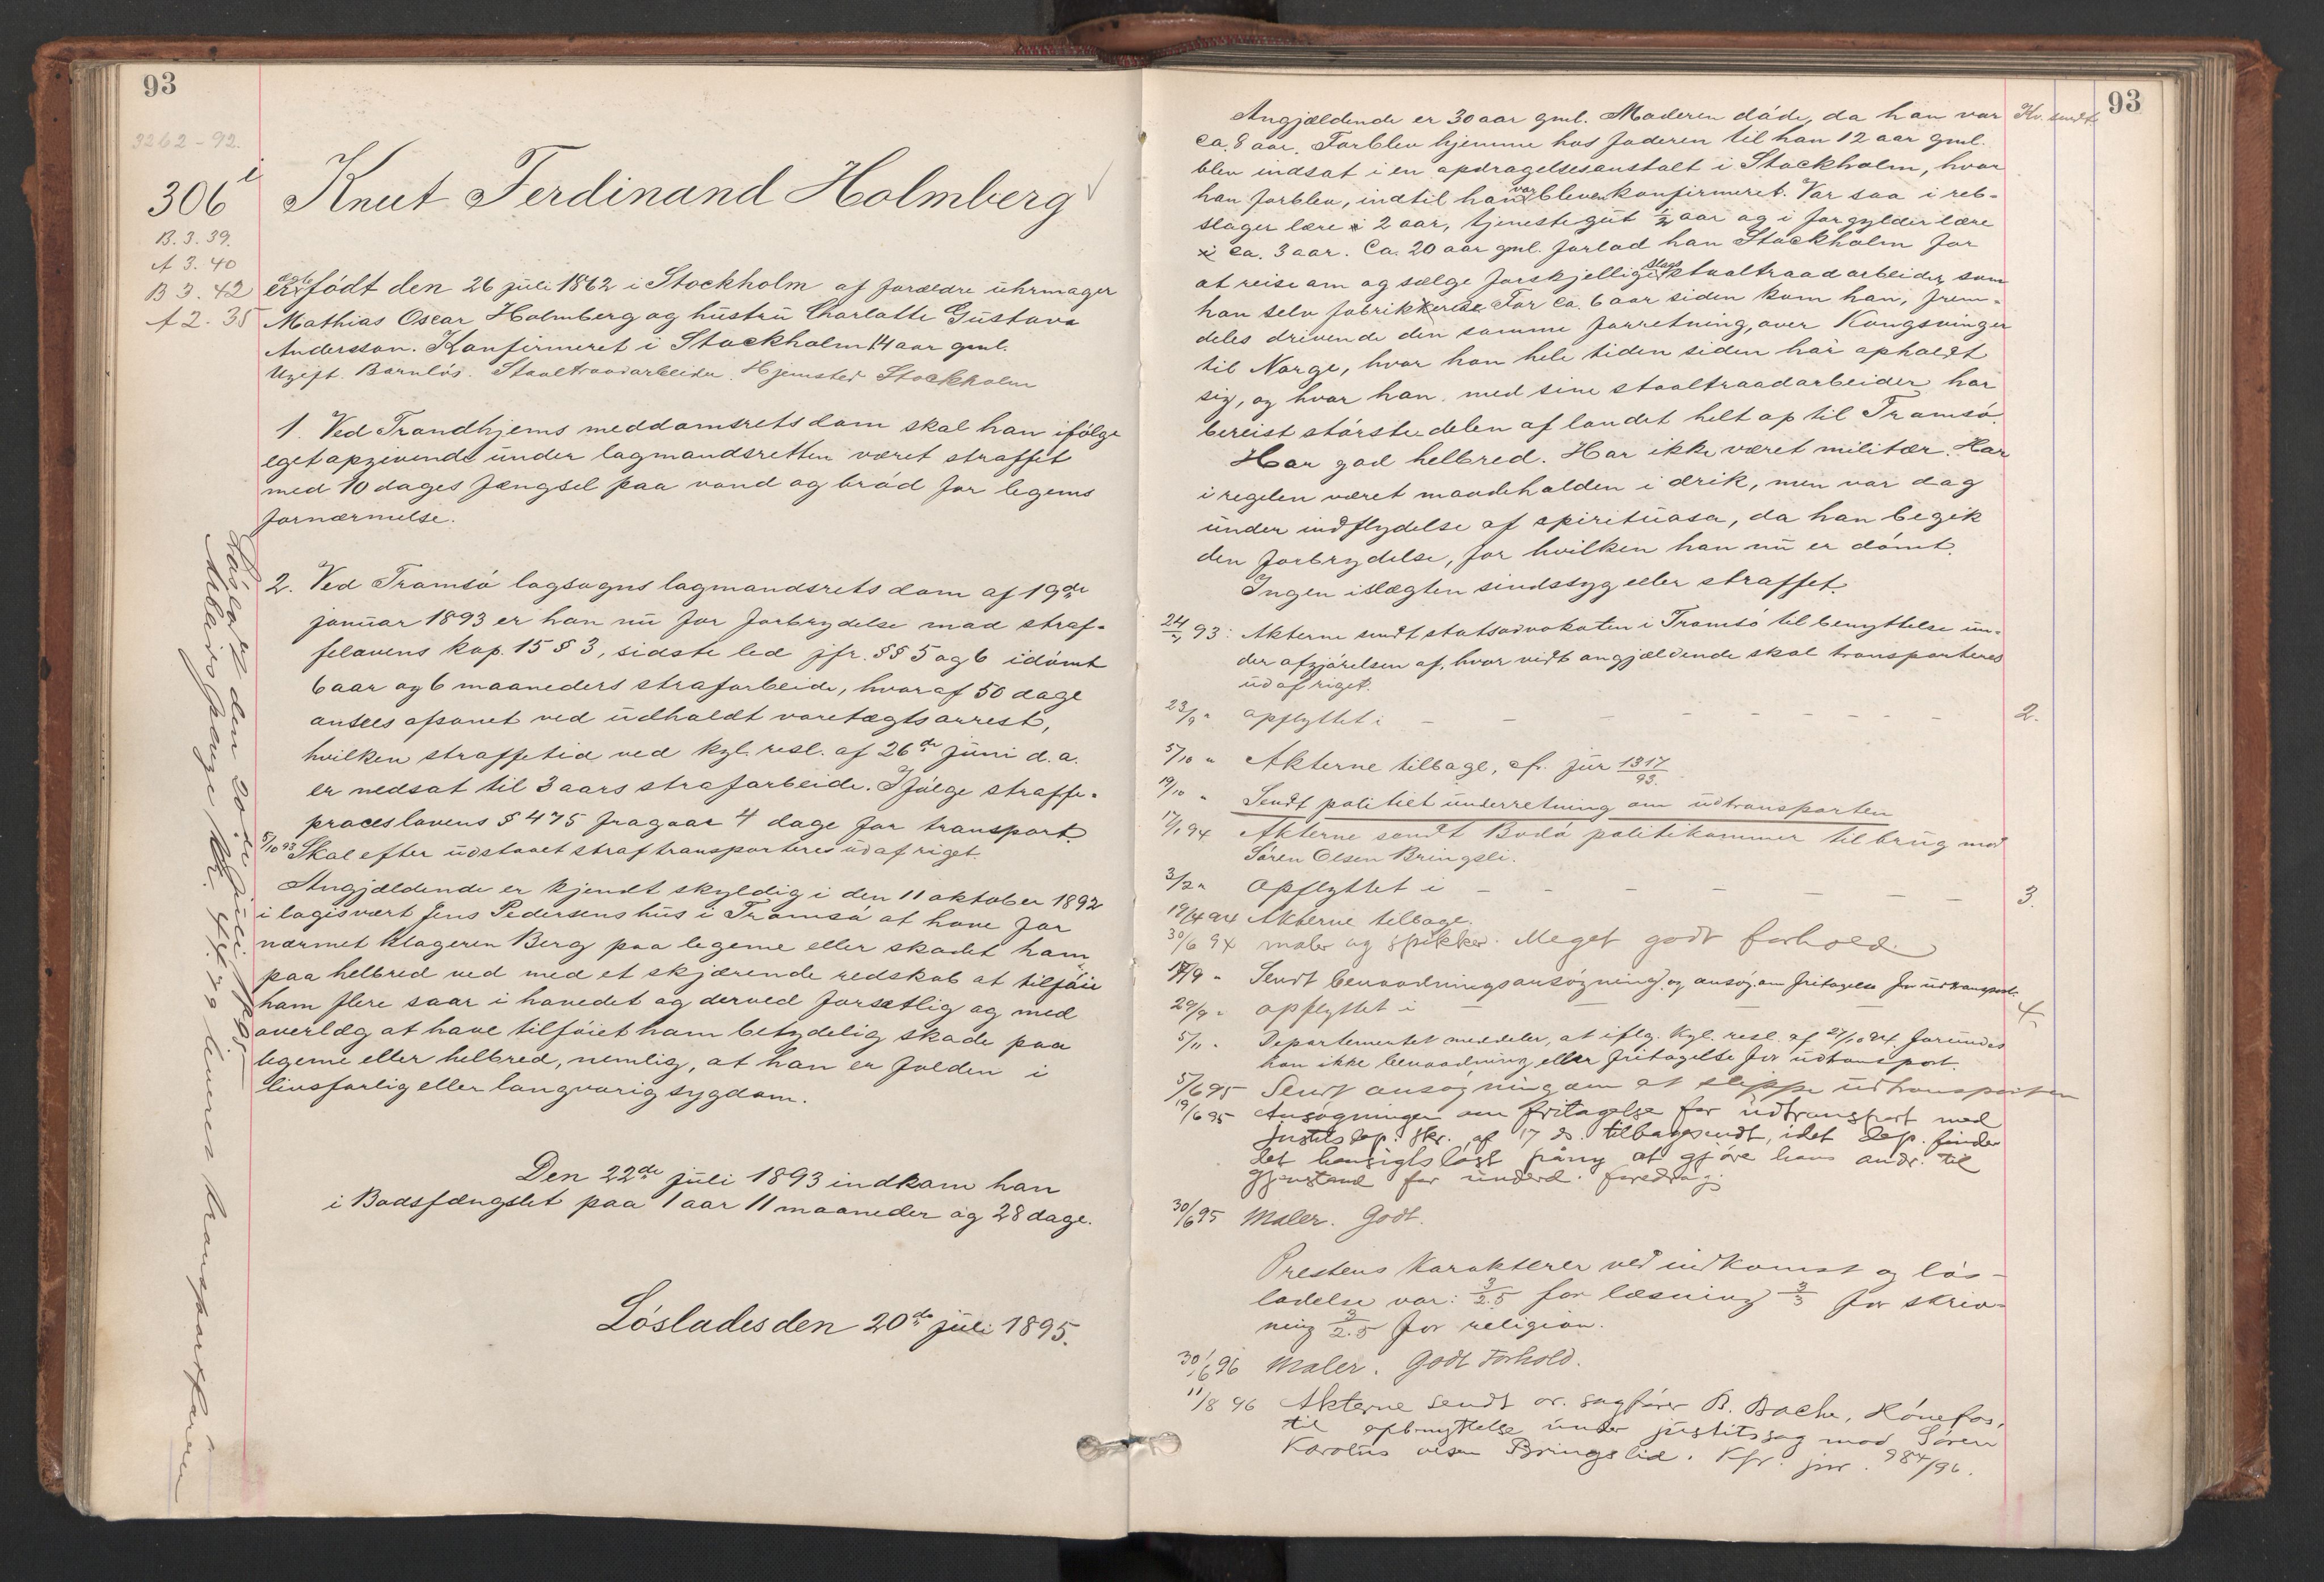 93
3262-92.
306 i
B. 3. 39.
A 3. 40
B 3. 42
A 2. 35
Knut Ferdinand Holmberg
er født den 26 juli 1862 i Stockholm af forældre uhrmager
Mathias Oscar Holmberg og hustru Charlotte Gustava
Andersson. Konfirmeret i Stockholm 14 aar gml.
Ugift. Barnløs. Staaltraadarbeider. Hjemsted Stockholm
1. Ved Trondhjems meddomsrets dom skal han ifølge
eget opgivende under lagmandsretten været straffet
med 10 dages fængsel paa vand og brød for legems
fornærmelse.
2. Ved Tromsø lagsogns lagmandsrets dom af 19de
januar 1893 er han nu for forbrydelse mod straf-
felovens kap. 15 § 3, sidste led jfr. §§ 5 og 6 idømt
6 aar og 6 maaneders strafarbeide, hvoraf 50 dage
ansees afsonet ved udholdt varetægtsarrest,
hvilken straffetid ved kgl. resl. af 26de juni d.a.
er nedsat til 3 aars strafarbeide. Ifølge straffe-
proceslovens § 475 fragaar 4 dage for transport.
5/10 93 Skal efter udstaaet straf transporteres ud af riget.
Angjældende er kjendt skyldig i den 11 oktober 1892
i logisvært Jens Pedersens hus i Tromsø at have for
nærmet klageren Berg paa legeme eller skadet ham
paa helbred ved med et skjærende redskab at tilføie
ham flere saar i hovedet og derved forsætlig og med
overlæg at have tilføiet ham betydelig skade paa
legeme eller helbred, nemlig, at han er falden i
livsfarlig eller langvarig sygdom.
Den 22de juli 1893 indkom han
i Bodsfængslet paa 1 aar 11 maaneder og 28 dage.
Løslades den 20de juli 1895.
Løsladt den 20de juli 1895
Arbeidspenge kr. 48.79 leveres transportføreren
93
Kv. sendt
Angjældende er 30 aar gml. Moderen døde, da han var
ca. 8 aar. Forblev hjemme hos faderen til han 12 aar gml.
blev indsat i en opdragelsesanstalt i Stockholm, hvor
han forblev, indtil han var bleven konfirmeret. Var saa i reb-
slager lære i 2 aar, tjenestegut ½ aar og i forgylder lære
i ca. 3 aar. Ca. 20 aar gml. forlod han Stockholm for
at reise om og sælge forskjellige slags staaltraadarbeider, som
han selv fabrikkerede. For ca. 6 aar siden kom han, frem-
deles drivende den samme forretning, over Kongsvinger
til Norge, hvor han hele tiden siden har opholdt
sig, og hvor han med sine staaltraadarbeider har
bereist største delen af landet helt op til Tromsø.
Har god helbred. Har ikke været militær. Har
i regelen været maadeholden i drik, men var dog
under indflydelse af spirituosa, da han begik
den forbrydelse, for hvilken han nu er dømt.
Ingen i slægten sindssyg eller straffet.
93: Akterne sendt statsadvokaten i Tromsø til benyttelse un-
der afgjørelsen af, hvorvidt angjældende skal transporteres
ud af riget.
23/9 " opflyttet i - - - - - - 2.
5/10 " Akterne tilbage, cfr. jur 1317/93.
19/10 " Sendt politiet underretning om udtransporten
17/1 94 Akterne sendt Bodø politikammer til brug mod
Søren Olsen Bringsli.
3/2 " Opflyttet i - - - - - - 3.
19/4 94 Akterne tilbage.
30/6 94 maler og spikker. Meget godt forhold.
17/9 " Sendt benaadningsansøgning og ansøg. om fritagelse for udtransport.
29/9 " opflyttet i - - - 4.
5/11 " Departementet meddeler, at iflg. kgl. resl. af 27/10 94 forundes
han ikke benaadning eller fritagelse for udtransport.
5/6 95 Sendt ansøgning om at slippe udtransporten
19/6 95 Ansøgningen om fritagelse for udtransport med
justitsdep. skr. af 17 ds. tilbagesendt, idet dep. finder
det hensigtsløst påny at gjøre hans andr. til
gjenstand for underd. foredrag.
30/6 95 Maler. Godt.
Prestens karakterer ved indkomst og løs-
ladelse var: 3/2.5 for læsning 3/3 for skriv-
ning 3/2.5 for religion.
30/6 96 Maler. Godt Forhold.
11/8 96 Akterne sendt or. sagfører B. Bache, Hønefos,
til afbenyttelse under justitssag mod Søren
Karolius olsen Bringslid. Kfr. jnr. 984/96.